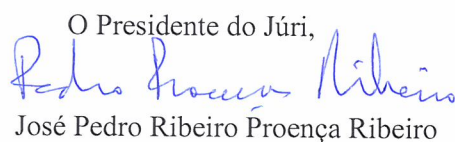 O Presidente do Júri,
Pedro Proença Ribeiro
José Pedro Ribeiro Proença Ribeiro